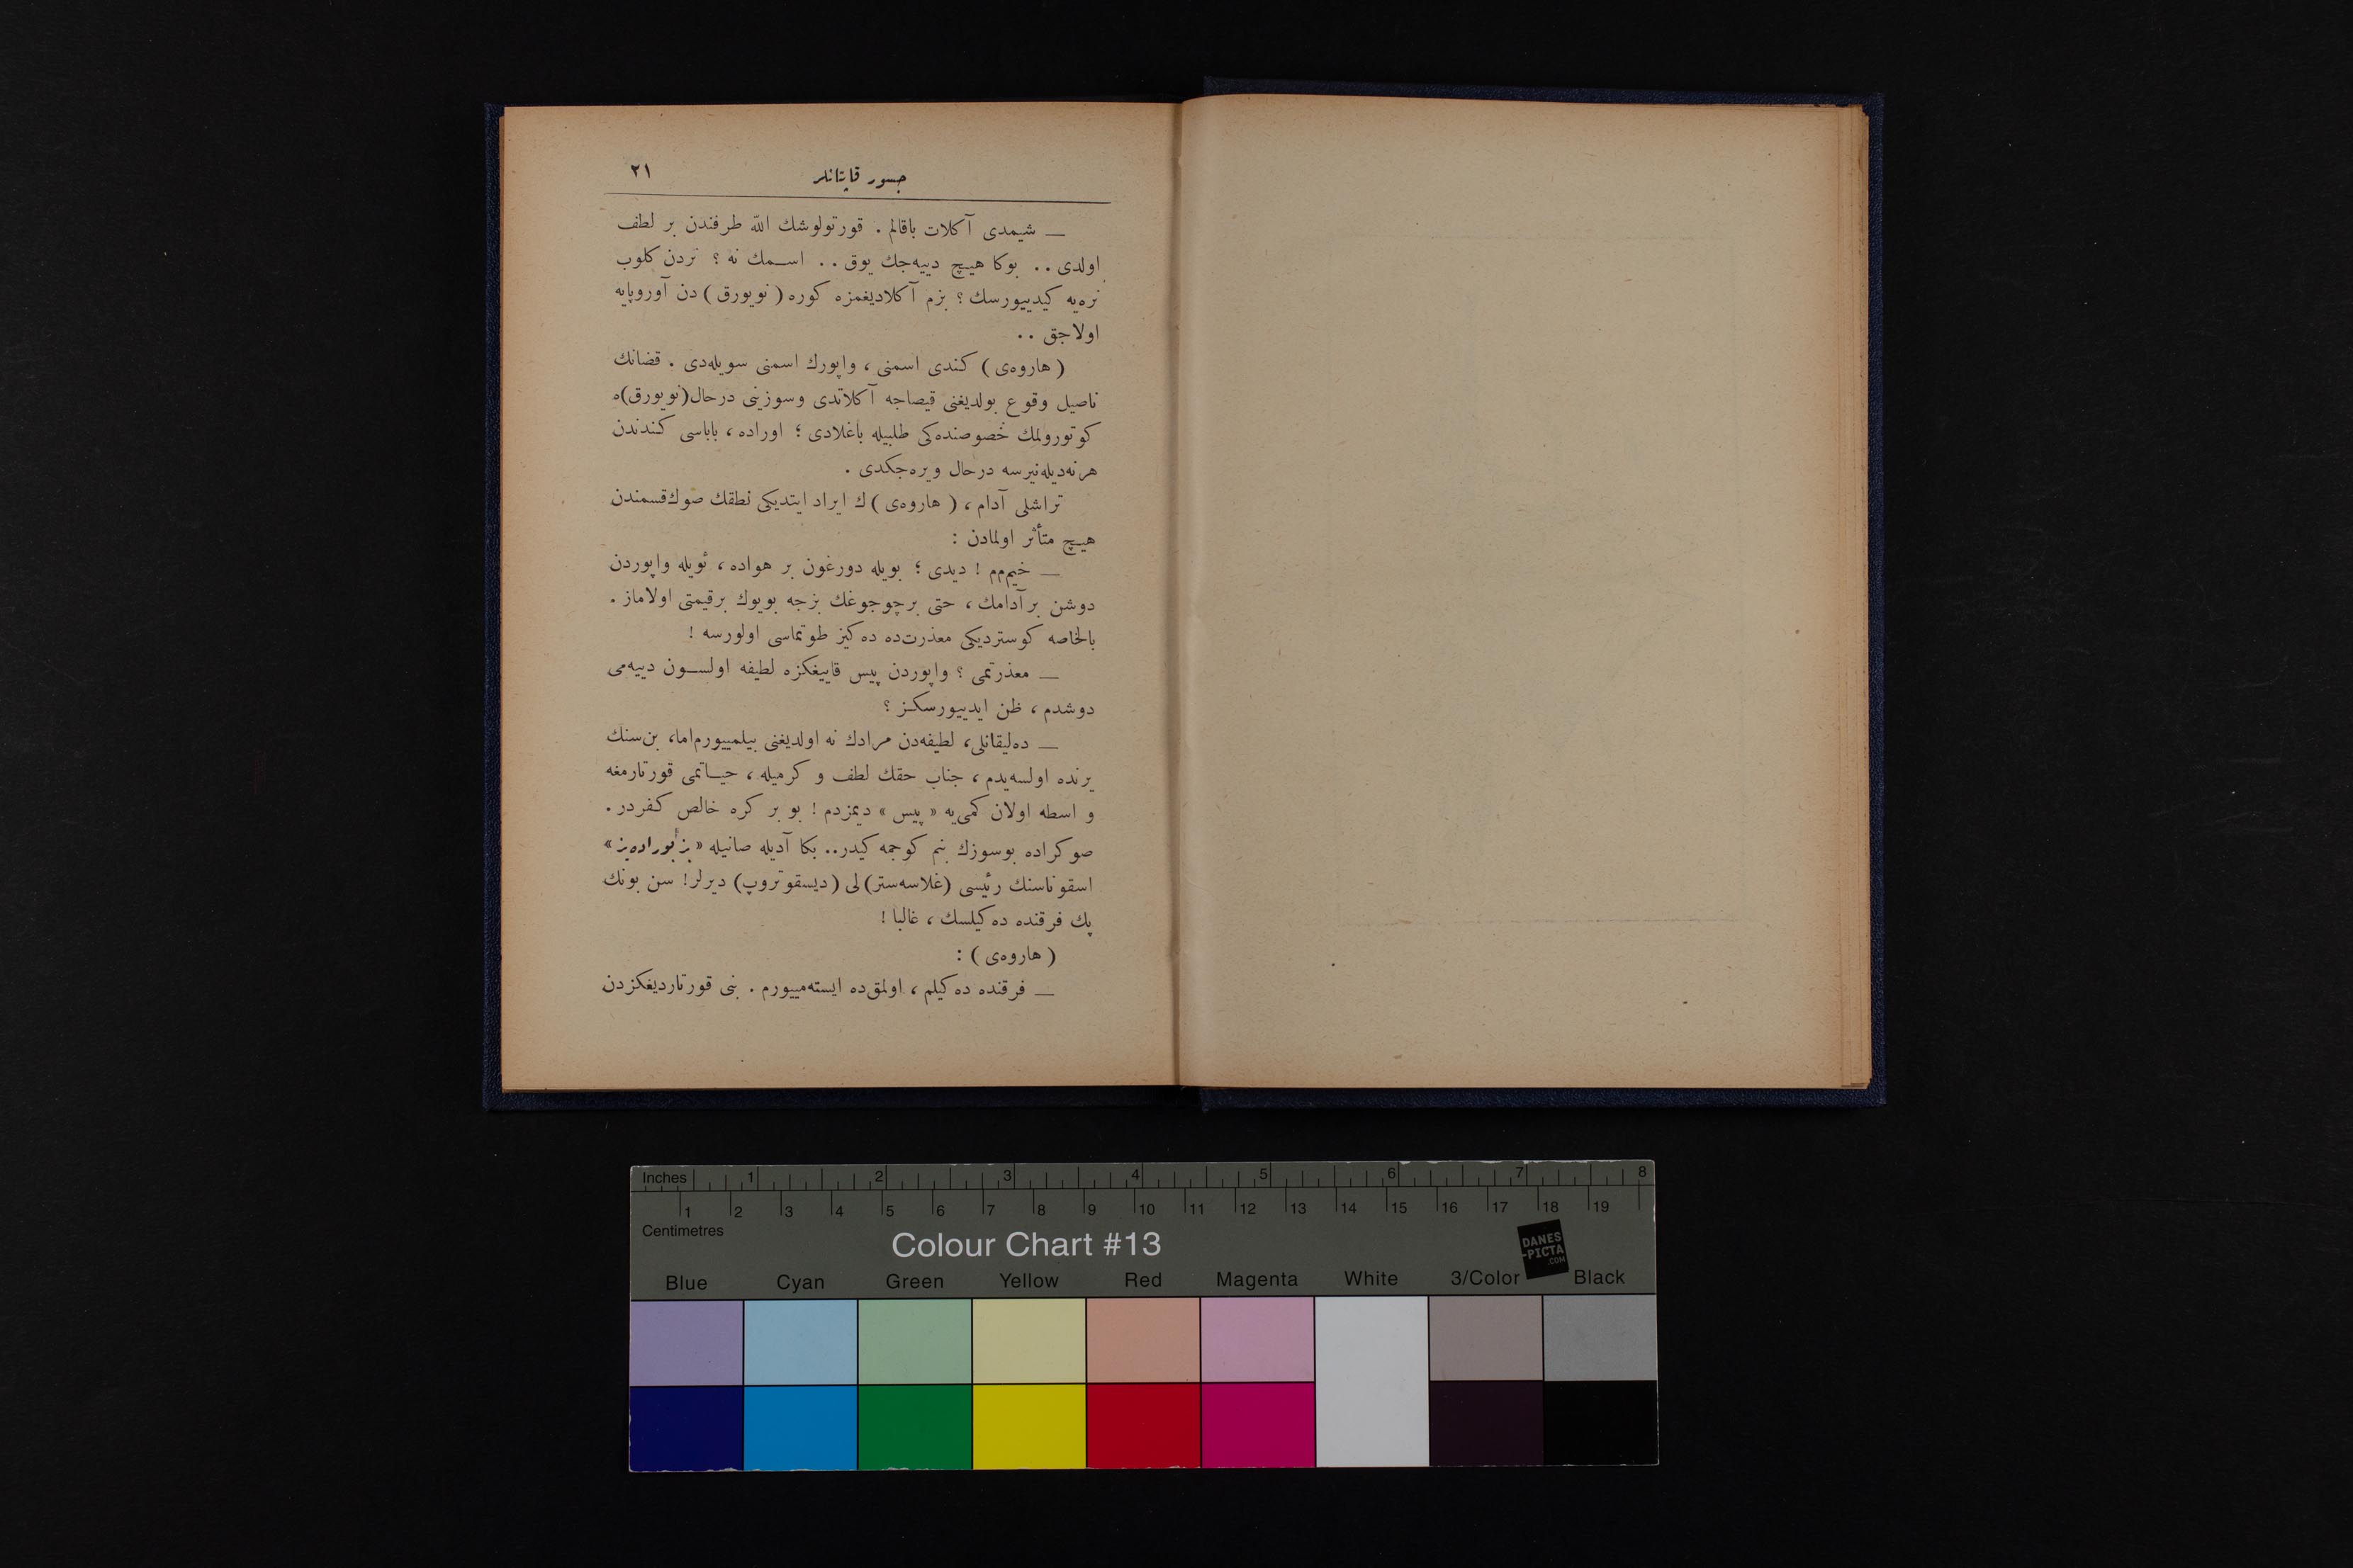 جسور قاپتانلر
٢١
— شیمدی آکلات باقالم . قورتولوشك اللّه طرفندن بر لطف
اولدی . . بوکا هیچ دییه‌جك یوق . . اسمك نه ؟ نردن کلوب
نره‌یه کیدییورسك ؟ بزم آکلادیغمزه کوره ( نویورق ) دن آوروپایه
اولاجق . .
( هاروه‌ی ) کندی اسمنی ، واپورك اسمنی سویله‌دی . قضانك
ناصیل وقوع بولدیغنی قیصاجه آکلاتدی وسوزینی درحال (نویورق)ه
کوتورولمك خصوصنده‌کی طلبیله باغلادی ؛ اوراده ، باباسی کندندن
هرنه‌دیله‌نیرسه درحال ویره‌جکدی .
تراشلی آدام ، ( هاروه‌ی ) ك ایراد ایتدیکی نطقك صوك‌قسمندن
هیچ متأثر اولمادن :
— خیم‌م‌م ! دیدی ؛ بویله دورغون بر هواده ، ئویله واپوردن
دوشن بر آدامك ، حتی برچوجوغك بزجه بویوك برقیمتی اولاماز .
بالخاصه کوستردیکی معذرت‌ده ده‌کیز طوتماسی اولورسه !
— معذرتمی ؟ واپوردن پیس قاییغکزه لطیفه اولسون دییه‌می
دوشدم ، ظن ایدییورسکز ؟
— ده‌لیقانلی، لطیفه‌دن مرادك نه اولدیغنی بیلمییورم‌اما، بن‌سنك
یرنده اولسه‌یدم ، جناب حقك لطف و کرمیله ، حیاتمی قورتارمغه
و اسطه اولان کمی‌یه « پیس » دیمزدم ! بو بر کره خالص کفردر .
صوکراده بوسوزك بنم کوجمه کیدر.. بکا آدیله صانیله « بز بوراده‌یز »
اسقوناسنك رئیسی (غلاسه‌ستر) لی (دیسقوتروپ) دیرلر! سن بونك
پك فرقنده ده‌کیلسك ، غالبا !
( هاروه‌ی ) :
— فرقنده ده‌کیلم ، اولمق‌ده ایسته‌مییورم . بنی قورتاردیغکزدن
Inches 1 2 3 4 5 6 7 8
1 2 3 4 5 6 7 8 9 10 11 12 13 14 15 16 17 18 19
Centimetres
Colour Chart #13
DANES
-PICTA
.COM
Blue Cyan Green Yellow Red Magenta White 3/Color Black